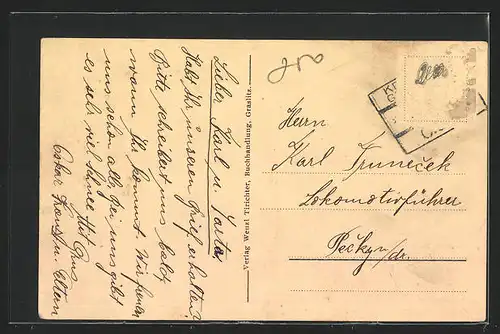 Lieber Karl u. Jarta,
Habt Ihr unseren Brief erhalten?
Bitte schreibet uns bald,
wann Ihr kommt. Wir freuen
uns schon alle, bei uns gibt
es sehr viel Schnee
Eltern
Verlag Wenzl Türichter, Buchhandlung, Graslitz.
Herrn
Karl Truneček
Lokomotivführer
Pečky n/dr.